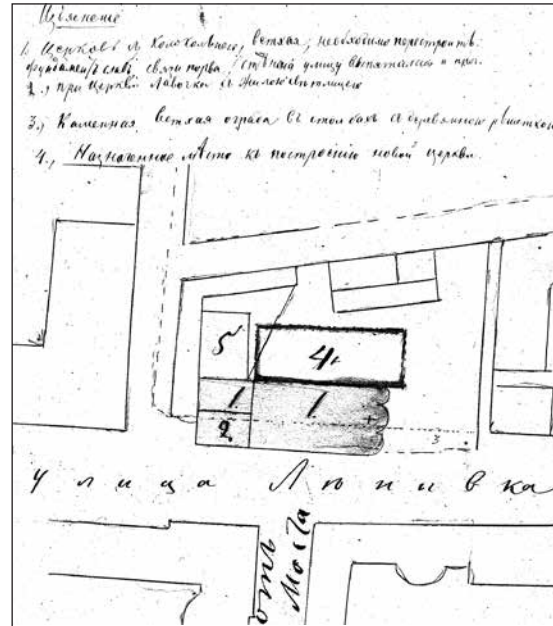 Изъясненіе
1. Церковь съ колокольнею, ветхая, необходимо перестроить.
фундаментъ слабъ, связи порва
2., при церкви лавочка съ жилою свѣтлицею
3., Каменная ветхая ограда въ столбахъ съ деревянною рѣшеткою
4., Назначенное мѣсто къ построенію новой церкви.
5
4.
1
1
2
3
Улица Лѣнивка
отъ
Моста